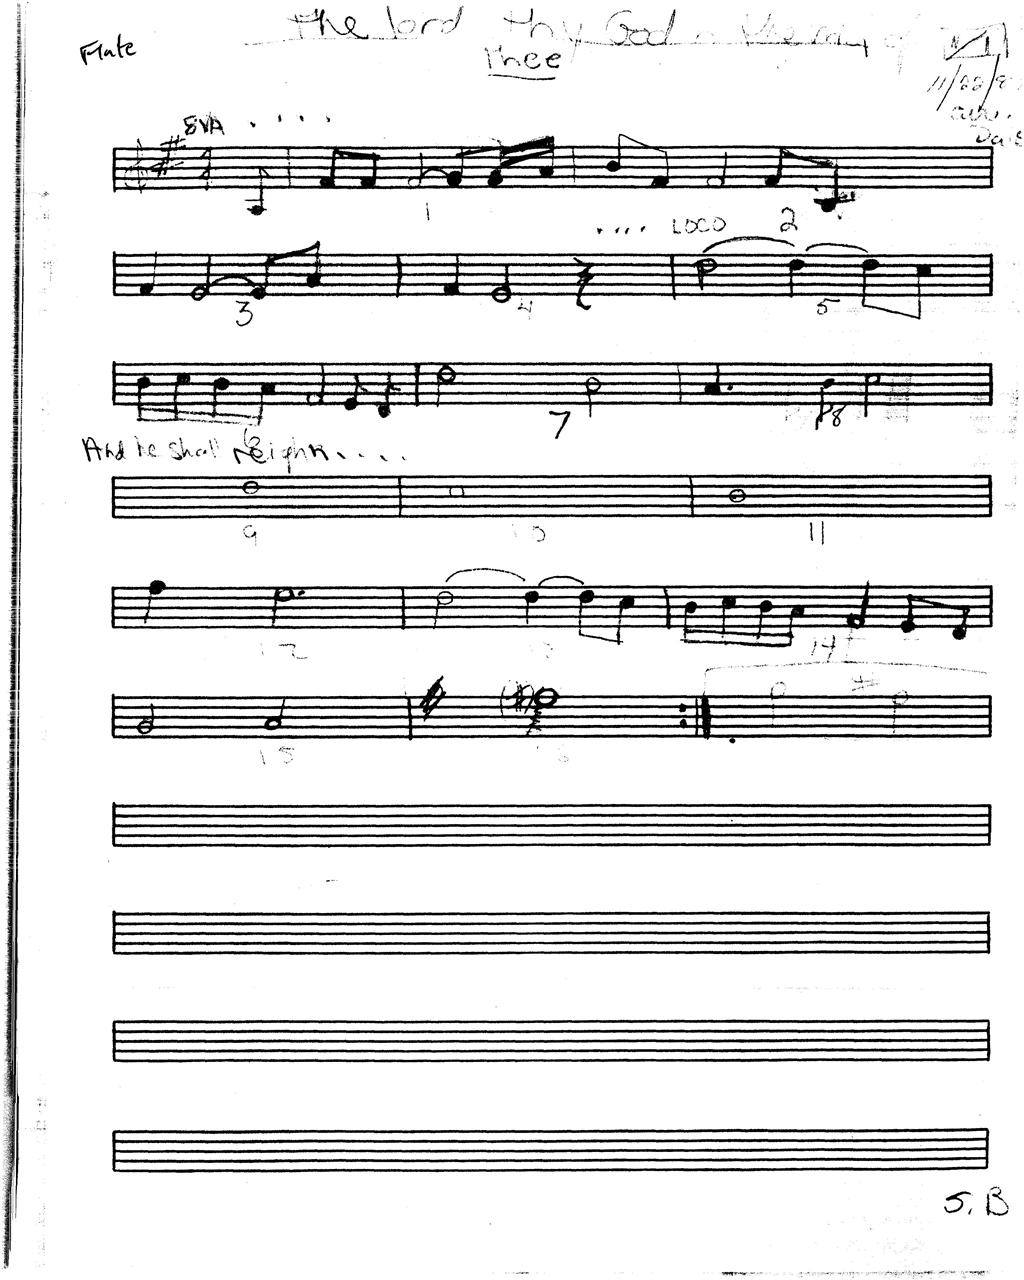 The lord thy God in the midst of
Flute
thee
11/22/8
arr.
8VA . . . .
1
. . . . LOCO 2
3 4 5
6 7 8
And he shall reign . . . .
9 10 11
12 13 14
15 16
S. B